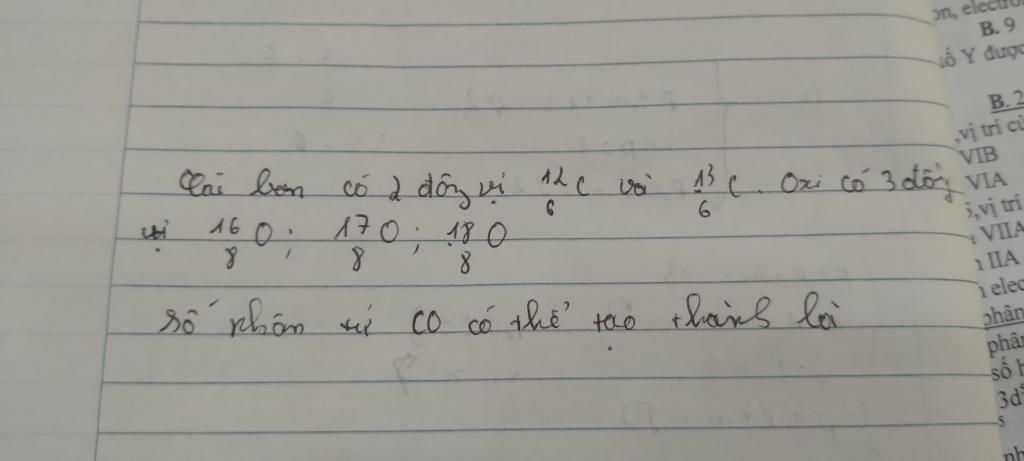 Cacbon có 2 đồng vị ¹²₆C và ¹³₆C. Oxi có 3 đồng
vị ¹⁶₈O; ¹⁷₈O; ¹⁸₈O
số phân tử CO có thể tạo thành là
on, electron
B. 9
tố Y được
B. 2
, vị trí củ
VIB
VIA
, vị trí
VIIA
IIA
elec
phân
phân
số h
3d